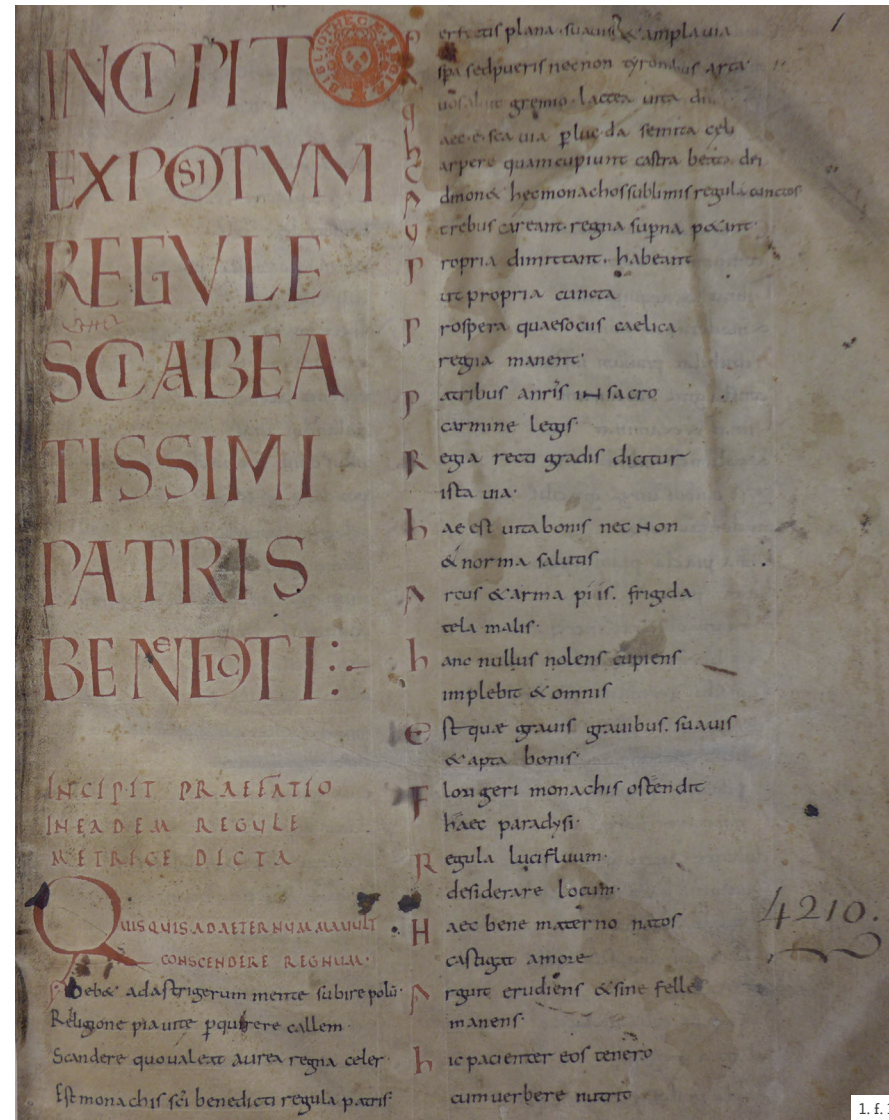 INCIPIT
EXPOSITVM
REGVLE
SCI ABEA
TISSIMI
PATRIS
BENEDICTI:-
INCIPIT PRAEFATIO
IN EADEM REGULE
METRICE DICTA
QUISQUIS AD AETERNUM MAVULT
CONSCENDERE REGNUM·
Debet adastrigerum mente subire polū·
Religione pia uite pquirere callem·
Scandere quo ualeat aurea regna celer·
Est monachis sci benedicti regula patris
1
erfectis plana suauis & ampla uia
sed pueris necnon tyronibus arta
gremio lactea uita
aec ē sca uia pluc da semita
arpere quam cupiunt castra beata dei
dmon& hec monachos sublimis regula cunctos
t rebus careant regna supna petunt·
Propria dimittant· habeant
ut propria cuncta
Prospera quae socius caelica
regia manent·
Patribus anris in sacro
carmine legis·
Regia recti gradis dicitur
ista uia·
hae est uita bonis nec non
& norma salutis
Arcus & arma piis. frigida
tela malis·
hanc nullus nolens cupiens
implebit & omnis
est quae grauis grauibus. suauis
& apta bonis·
Florigeri monachis ostendit
haec paradysi·
Regula lucifluum·
desiderare locum·
Haec bene materno natos
castigat amore
Arguit erudiens & sine felle
manens·
hic pacienter eos tenero
cum uerbere nutrit
4210.
1. f. 1